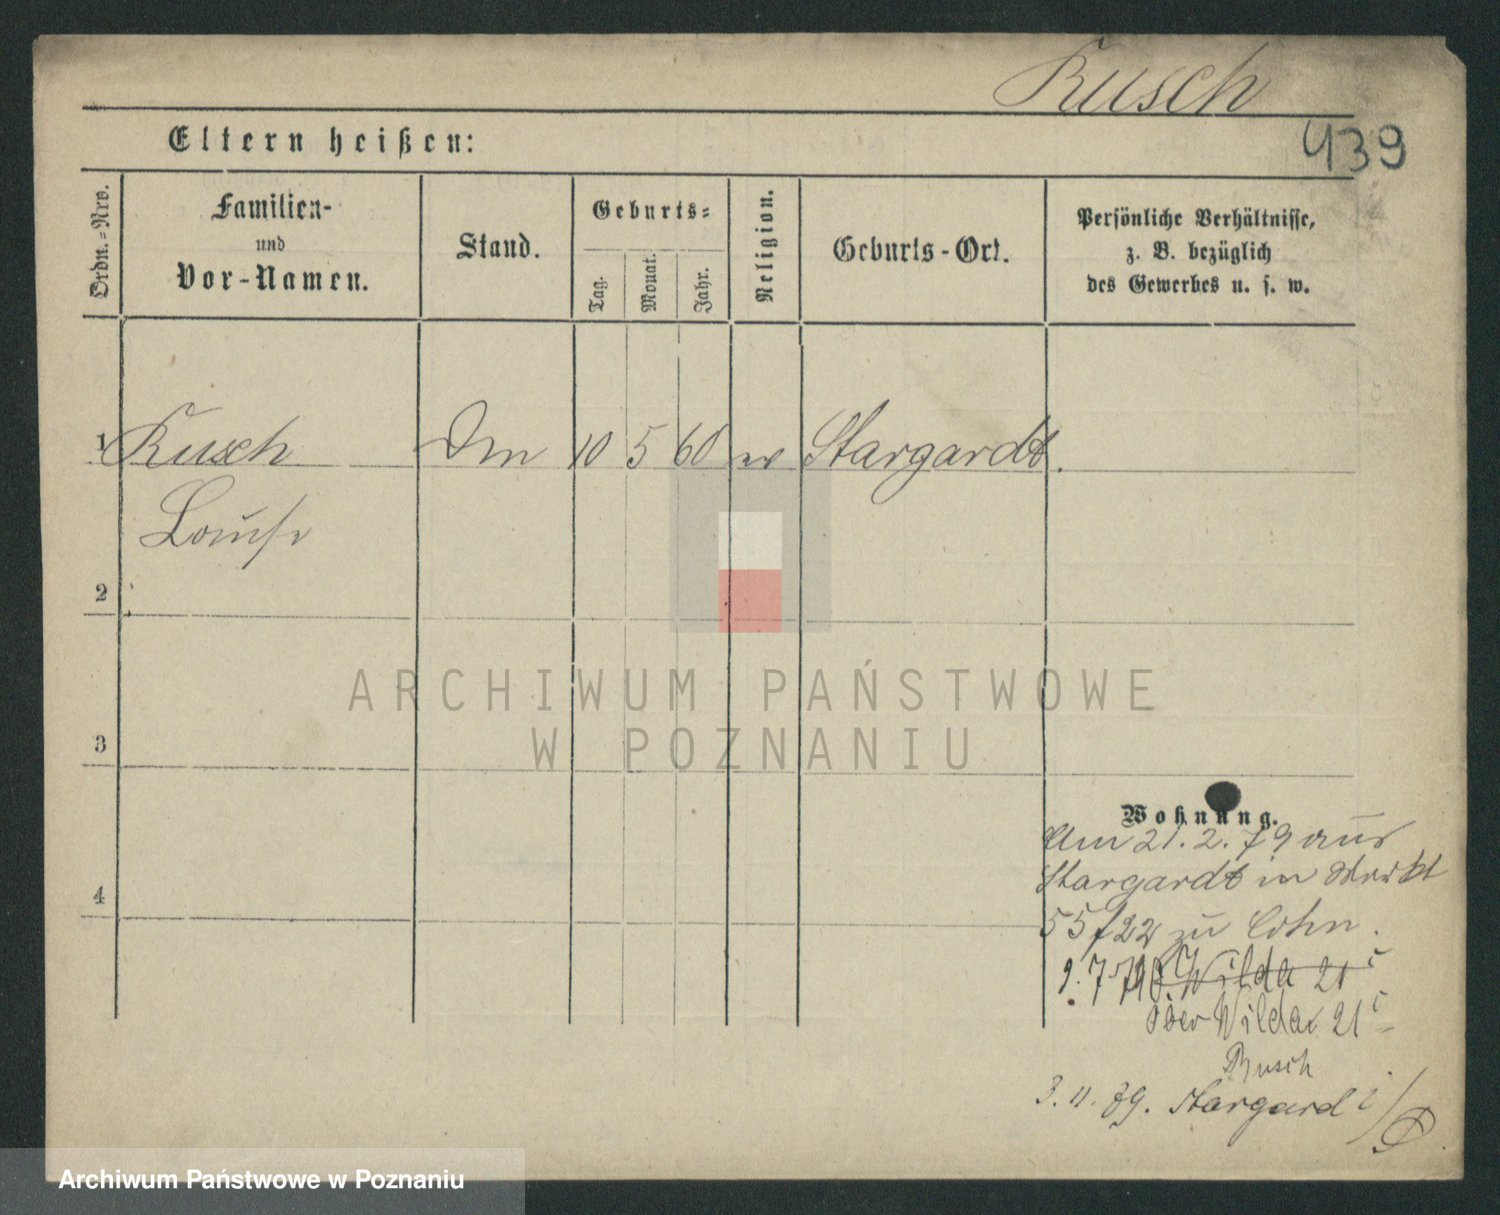 Kusch
439
Eltern heißen:
Ordn.-Nrs.
Familien-
und
Vor-Namen.
Stand.
Geburts-
Tag.
Monat.
Jahr.
Religion.
Geburts-Ort.
Persönliche Verhältnisse,
z. B. bezüglich
des Gewerbes u. s. w.
1 Kusch 10 5 60 ev Stargardt.
Louise
2
3
4
ARCHIWUM PAŃSTWOWE
W POZNANIU
Wohnung.
Am 21. 2. 79 aus
Stargardt in Markt
55/22 zu Cohn.
Wilda 21
Ober Wilda 21
Busch
3. 11. 89. Stargard
Archiwum Państwowe w Poznaniu